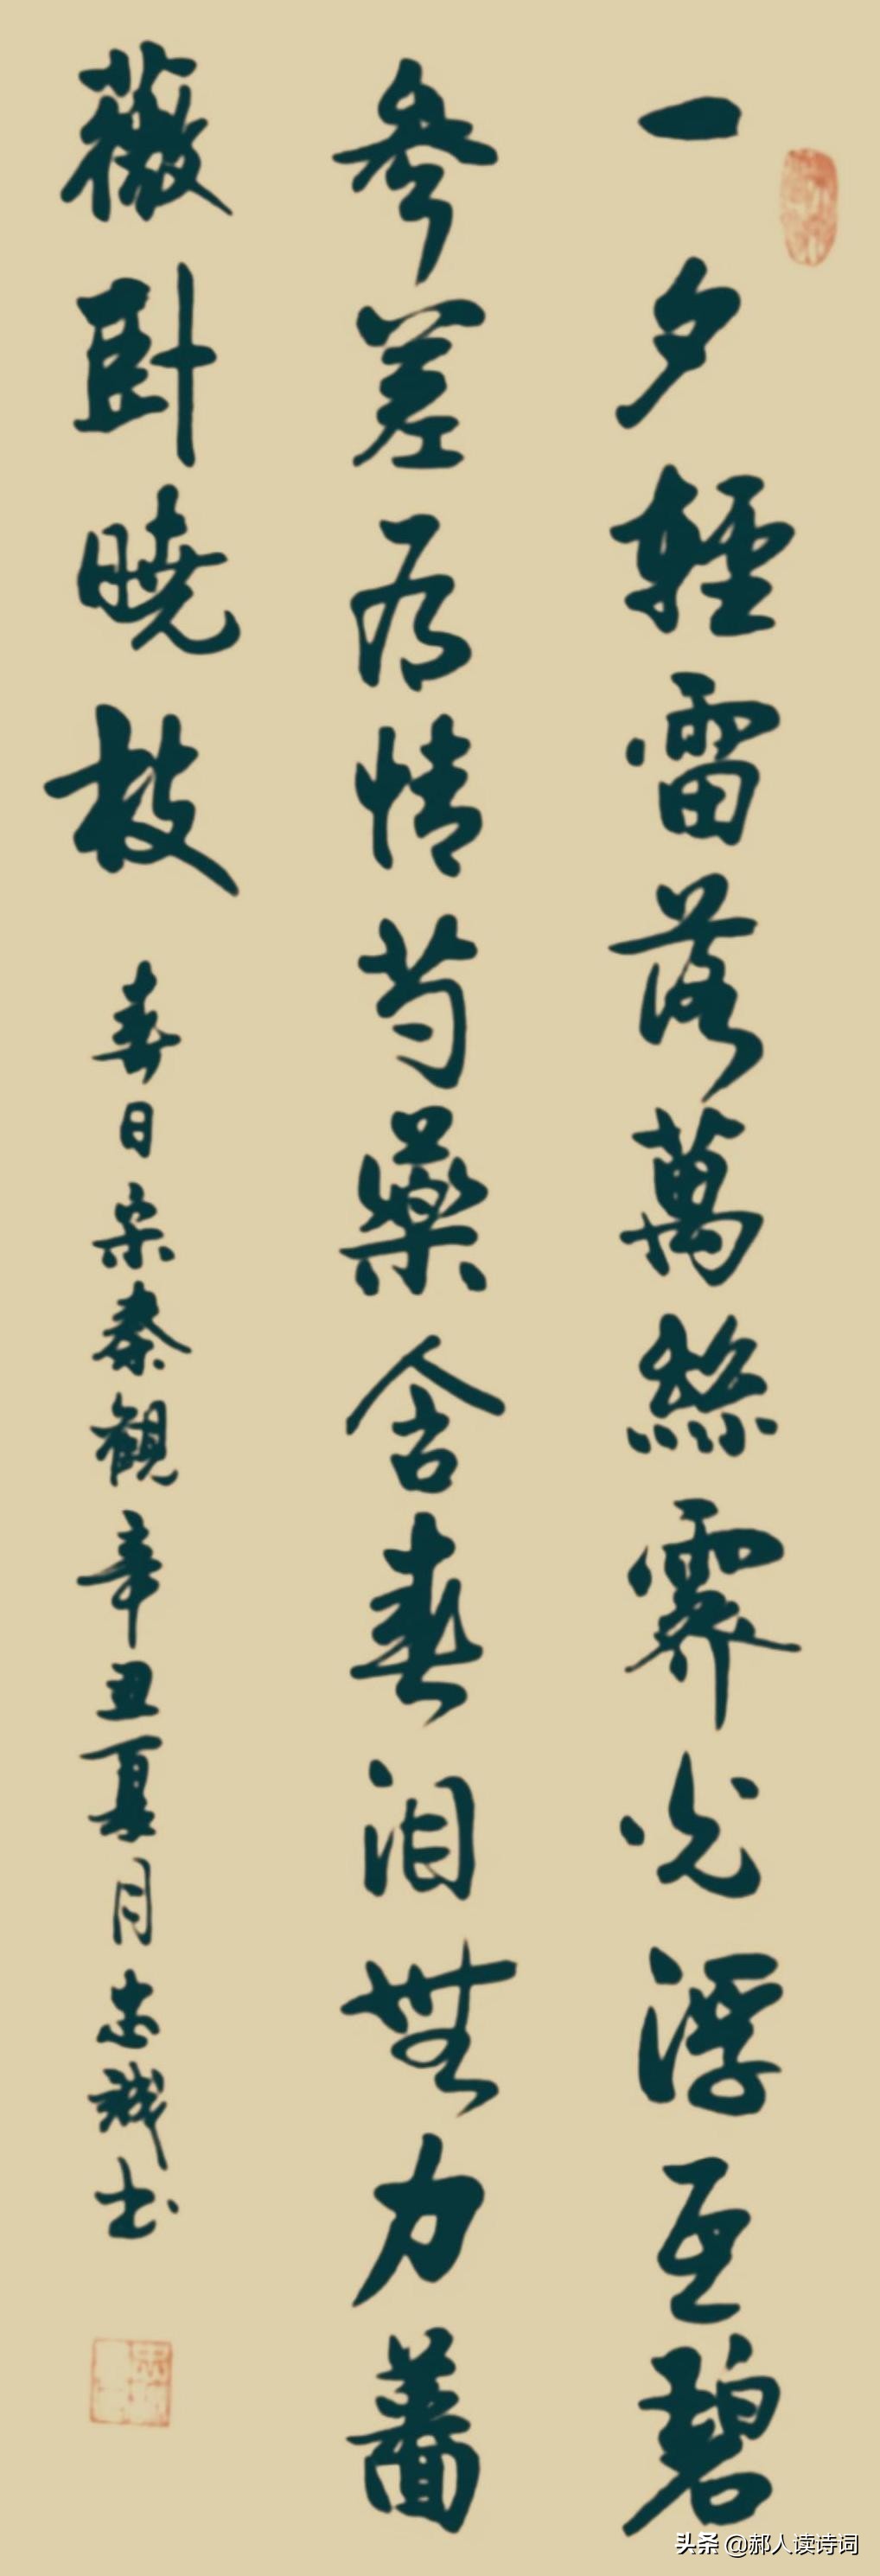 一夕輕雷落萬絲霽光浮瓦碧
參差有情芍藥含春泪無力薔
薇卧曉枝 春日宋秦觀辛丑夏月忠誠书
头条 @郝人读诗词